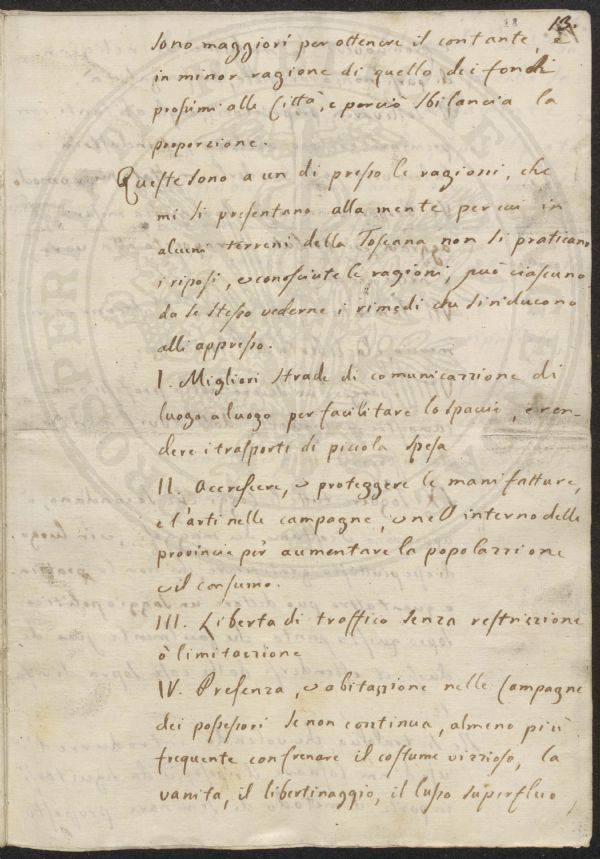 13.
sono maggiori per ottenere il contante, e
in minor ragione di quello dei fondi
prossimi alle Città, e perciò sbilancia la
proporzione.
Queste sono a un di presso le ragioni, che
mi si presentano alla mente per cui in
alcuni terreni della Toscana non si praticano
i riposi, e conosciute le ragioni, può ciascuno
da se stesso vederne i rimedi che s'inducono
alli appresso.
I. Migliori strade di comunicazzione di
luogo a luogo per facilitare lo spaccio, e ren-
dere i trasporti di piccola spesa
II. Accrescere, e proteggere le manifatture,
e l'arti nelle campagne, e nell'interno delle
provincie per aumentare la popolazzione
e il consumo.
III. Liberta di traffico senza restrizzione
ò limitazzione
IV. Presenza, e abitazzione nelle Campagne
dei possessori se non continua, almeno più
frequente con frenare il costume vizzioso, la
vanita, il libertinaggio, il lusso superfluo,